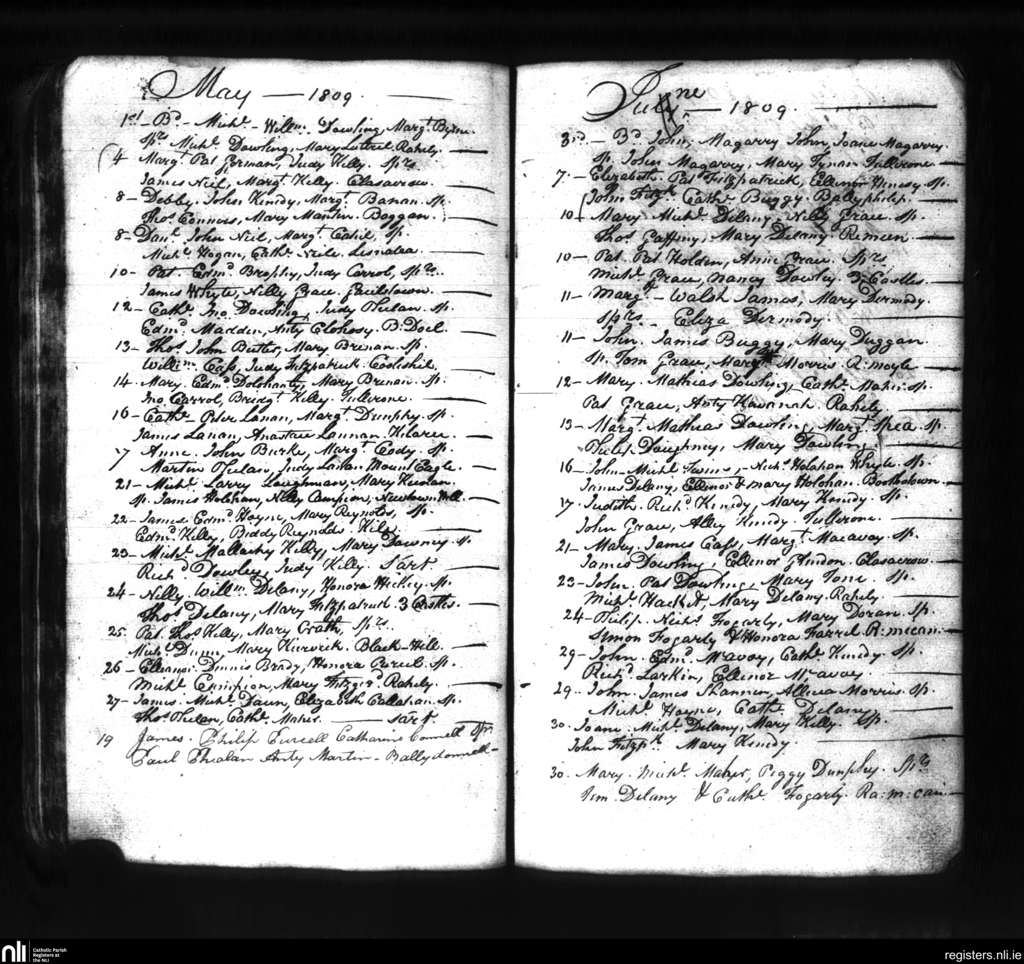 May — 1809 —
1st - Bd - Michl - Willm Dowling, Margt Byrne
sprs Michl Dowling, Mary Luttrel Rahely. —
4 Margt Pat Gorman, Judy Kelly. Sprs
James Neil, Margt Kelly. Clasacrow. —
8 - Debby. John Kenidy, Margt Banan. Sp.
Thos Connors, Mary Manten. Boggan. —
8 - Danl John Neil, Margt Cahil, Sp.
Michl Hogan, Cathe Neile. Lisnalea. —
10 - Pat. Edmd Brophy, Judy Carrol, Sprs.
James Whyte, Nelly Grace. Gaulstown. —
12 - Cathe Jno Dowling, Judy Phelan. Sp.
Edmd Madden, Anty Clohosy. B:Doel. —
13 - Thos John Butler, Mary Brenan. Sp.
Willm Cass, Judy Fitzpatrick. Cooleshil —
14. Mary. Edmd Delehanty, Mary Brenan. Sp.
Jno Carrol, Bridgt Kelly. Tullerone. —
16 - Cathe Peter Lanan, Margt Dunphy. Sp.
James Lanan, Anastace Lannan. Kilaree. —
17 Anne. John Burke, Margt Cody. Sp.
Martin Phelan, Judy Lanan. Mount Eagle.
21 - Michl Larry Loughman, Mary Keenan.
Sp. James Holohan, Nelly Campion, Newtown Hill.
22 - James Edmd Hayne, Mary Reynolds, Sp.
Edmd Kelly, Biddy Reynolds. —
23 - Michl Mallachy Kelly, Mary Downey. Sp
Richd Dowley, Judy Kelly. Sart —
24 - Nelly. Willm Delany, Honora Hickey. Sp.
Thos Delany, Mary Fitzpatrick. 3 Castles. —
25. Pat. Thos Kelly, Mary Crath, Sprs.
Michl Dunn, Mary Kerwick. Black-Hill. —
26 - Eleanor. Dennis Brady, Honora Purcel. Sp.
Michl Campion, Mary Fitzgerd Rahely. —
27 - James. Michl Daun, Elizabeth Callahan. Sp.
Thos Phelan, Cathe Maher. — Sart. —
19 James. Philip Purcell Catharine Connell Spr
Paul Phealan Anty Martin - Ballydonnell -
June — 1809. —
3rd - Bd John, Magarry John, Joane Magarry.
Sp. John Magarry, Mary Tynan Tullerone. —
7 - Elizabeth. Pat Fitzpatrick, Ellenor Henesy Sp.
John Fitzk Cathe Buggy Ballyphilip. —
10 - Mary. Michl Delany, Nelly Grace. Sp.
Thos Gaffiny, Mary Delany. Remeen —
10 - Pat. Pat Holden, Anne Grace. Sprs
Michl Grace, Nancy Dowley. 3 Castles. —
11 - Margt - Walsh James, Mary Dermody.
Sprs. Eliza Dermody. —
11 - John, James Buggy, Mary Duggan.
Sp. Tom Grace, Margt Morris R:moyle —
12 - Mary. Mathias Dowling, Cathe Maher. Sp.
Pat Grace, Anty Kavanah. Rahely. —
13 - Margt Mathias Dowling, Margt Spea. Sp.
Phelix Doughney, Mary Dowling. —
16 - John - Michl, Nichs Holohan Whyte. Sp.
James Delany, Ellenor & Mary Holohan. Boolatown.
17 - Judith. Richd Kenidy, Mary Kenedy. Sp.
John Grace, Alley Kenedy. Tullerone. —
21 - Mary. James Cass, Margt Macavoy. Sp.
James Dowling, Ellenor Glindon. Clasacrow. —
23 - John. Pat Dowling, Mary Tone. Sp.
Michl Hacket, Mary Delany. Rahely. —
24 - Philip. Nichs Fogarty, Mary Doran. Sp.
Simon Fogarty & Honora Farrel. R:mccan. —
29 - John. Edmd McAvoy, Cathe Kenedy. Sp.
Richd Larkin, Ellenor McAvoy. —
29. John. James Shannin, Allicia Morris. Sp.
Michl Hayne, Cathe Delany. —
30. Joane. Michl Delany, Mary Kelly. Sp.
John Fitzpk Mary Kenedy. —
30. Mary. Michl Maher, Peggy Dunphy. Sprs
Jem Delany & Cathe Fogarty. Ra:m:can —
nli
Catholic Parish
Registers at
the NLI
registers.nli.ie